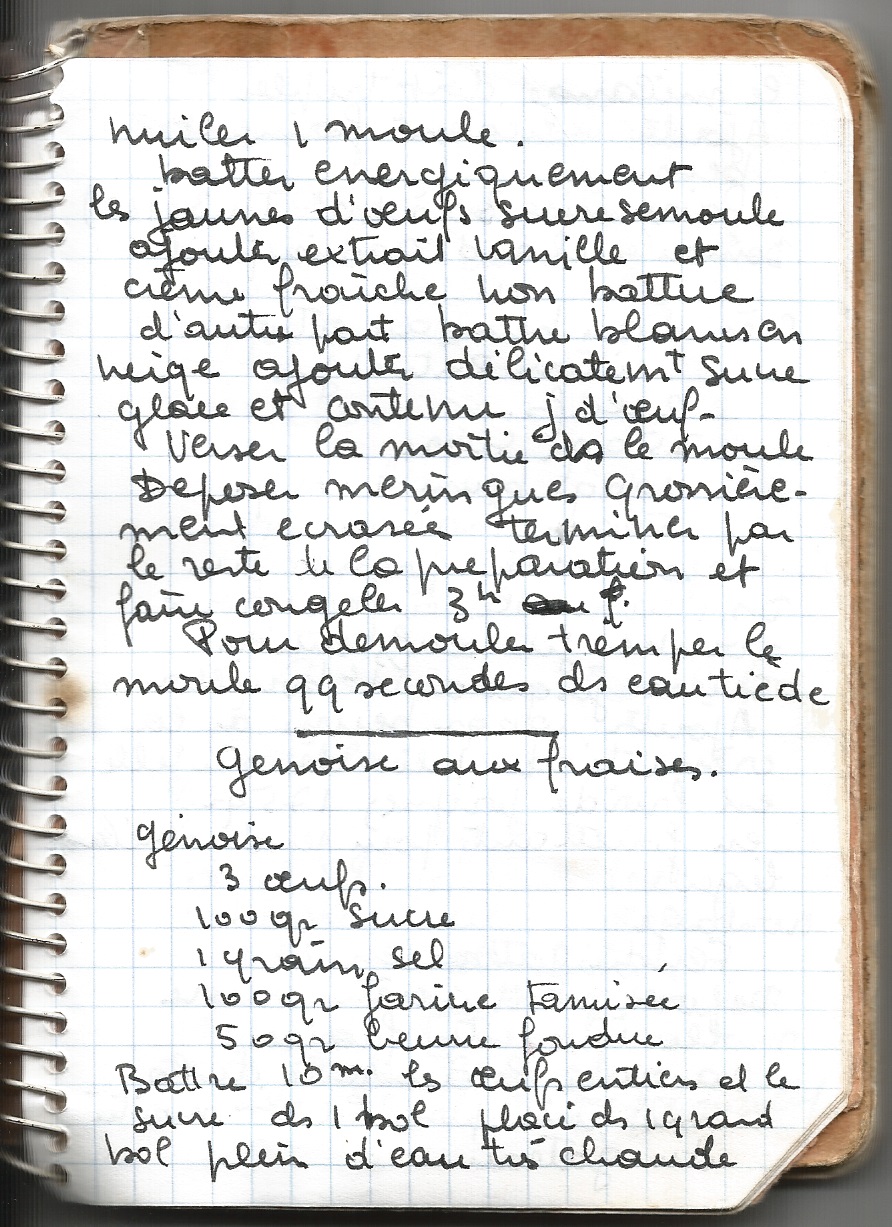 huiler 1 moule.
batter energiquement
les jaunes d'œufs sucre semoule
ajouter extrait vanille et
crème fraîche non battue
d'autre part battre blancs en
neige ajouter délicatemt sucre
glace et contenu j d'œuf-
Verser la moitié ds le moule
Deposer meringues grossière-
ment ecrasée terminer par
le reste de la preparation et
faire congeler 3h
Pour demouler tremper le
moule qq secondes ds eau tiède
Genoise aux fraises.
génoise
3 œufs.
100 gr sucre
1 grain sel
100 gr farine tamisée
50 gr beurre fondue
Battre 10 m. les œufs entiers et le
sucre ds 1 bol placé ds 1 grand
bol plein d'eau très chaude